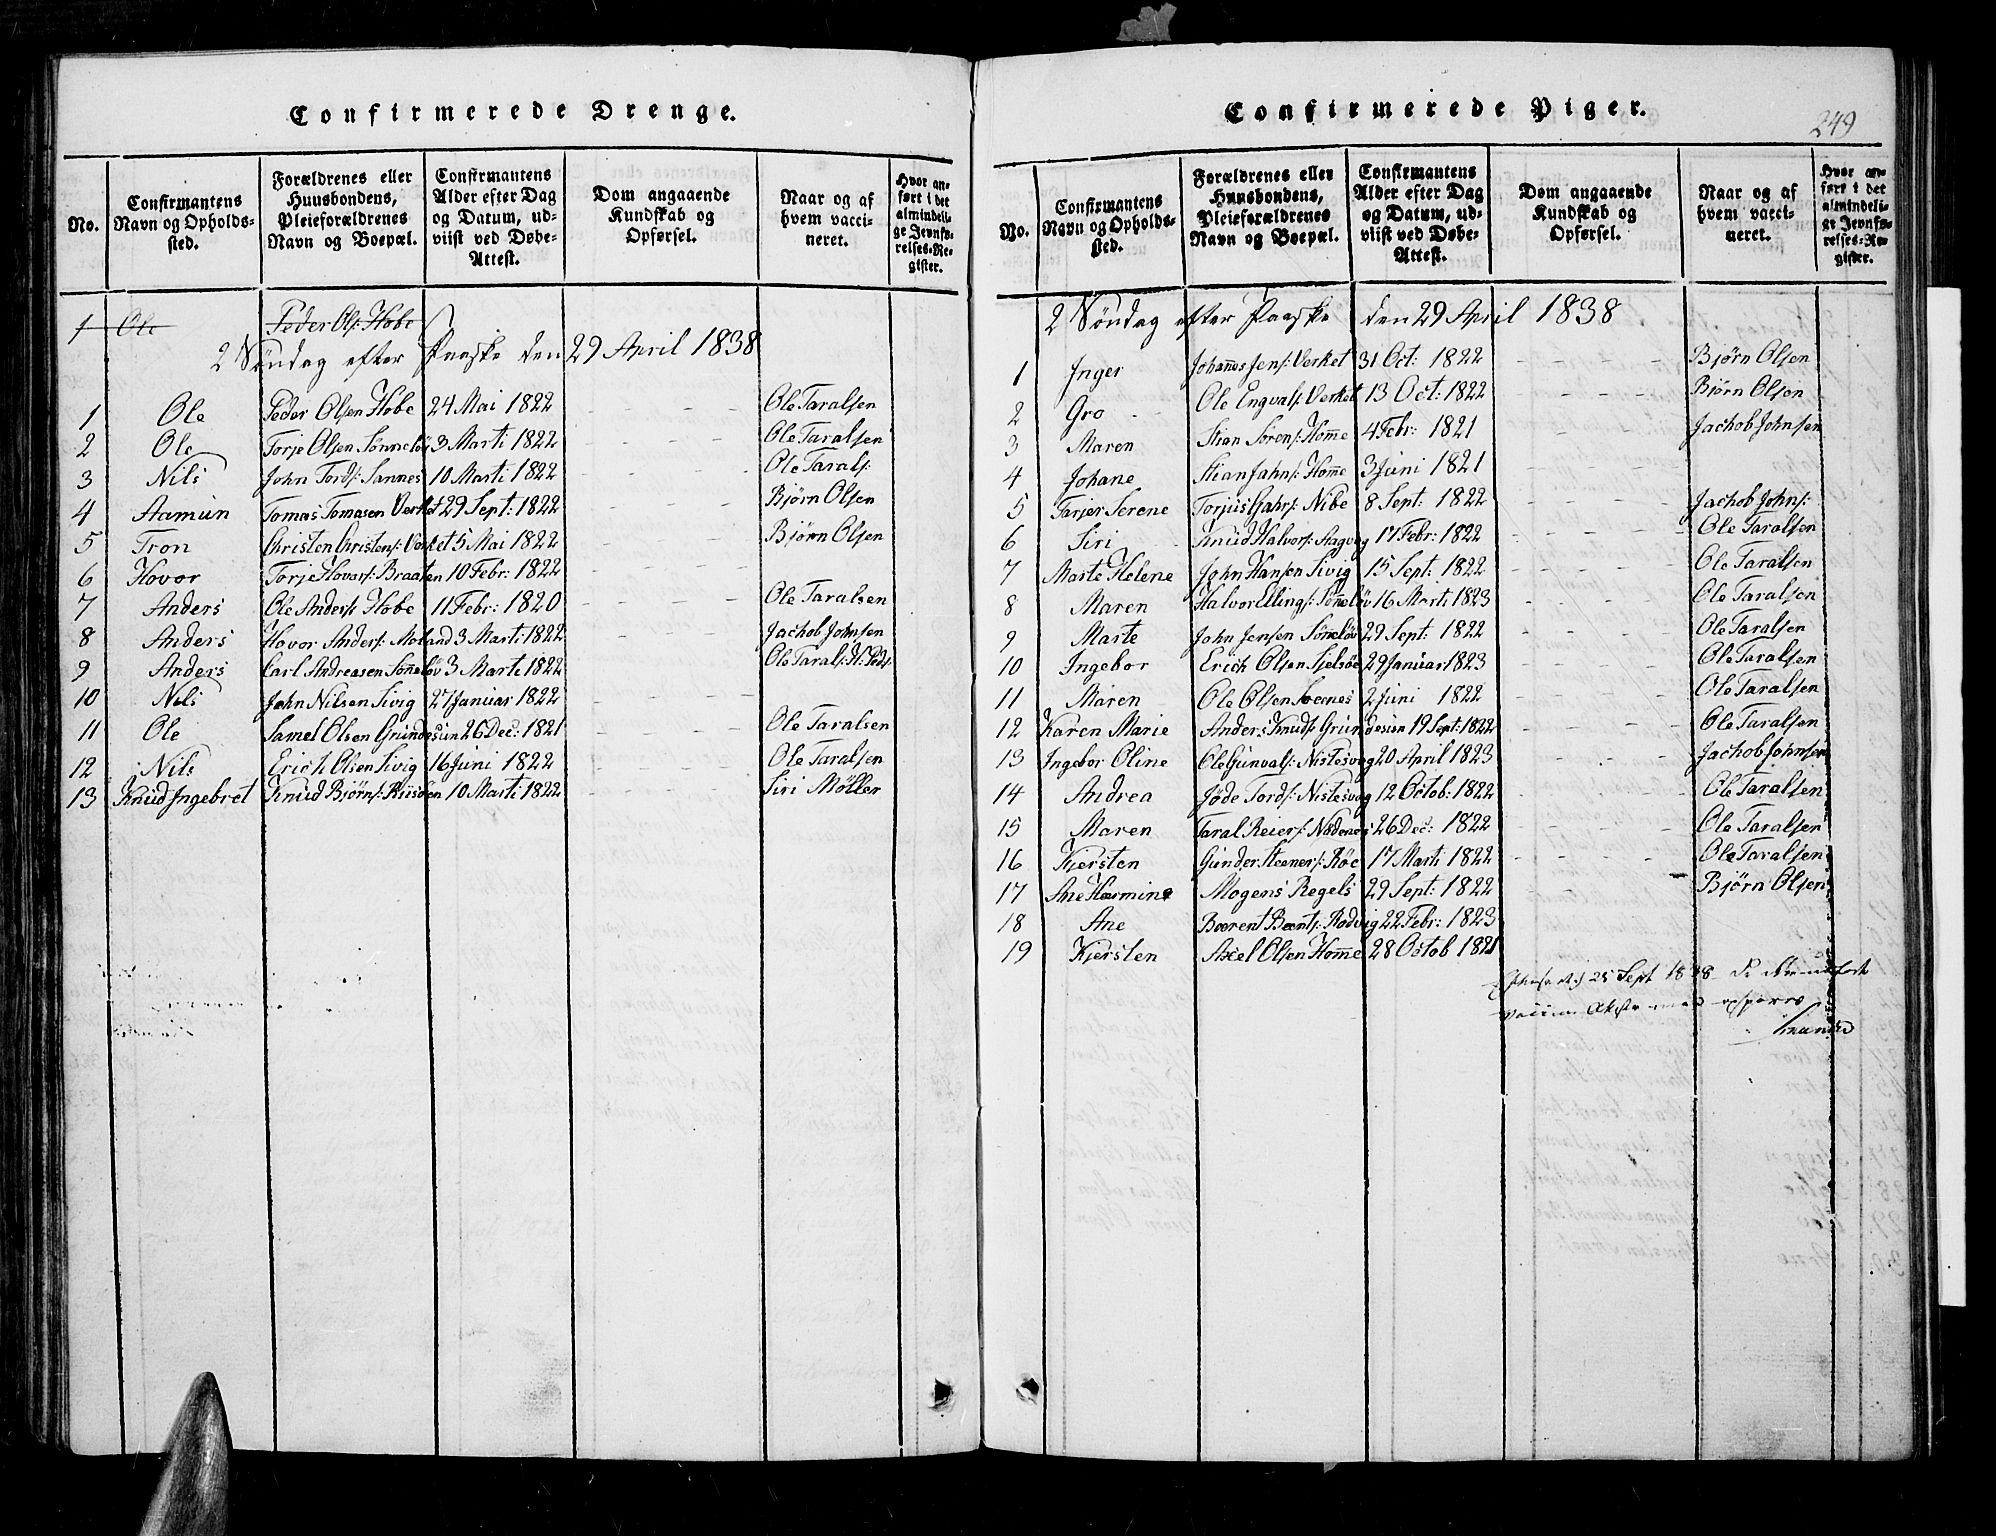 Confirmerede Drenge.
No. | Confirmantens Navn og Opholdssted. | Forældrenes eller Huusbondens, Pleieforældrenes Navn og Boepæl. | Confirmantens Alder efter Dag og Datum, udviist ved Døbe-Attest. | Dom angaaende Kundskab og Opførsel. | Naar og af hvem vaccineret. | Hvor anført i det almindelige Jevnførelses-Register.
1 Ole Peder Ols: Hobe
2 Söndag efter Paaske den 29 April 1838
1 Ole Peder Olsen Hobe 24 Mai 1822 - - - Ole Taralsen
2 Ole Torje Olsen Sönnelöv 3 Marti 1822 - - - Ole Taralsen
3 Nils John Tords: Sannes 10 Marti 1822 - - - Ole Tarals:
4 Aamun Tomas Tomasen Verket 29 Sept: 1822 - - - Bjørn Olsen
5 Tron Christen Christens: Verket 5 Mai 1822 - - - Bjørn Olsen
6 Hovor Torje Hovors: Braaten 10 Febr: 1822
7 Anders Ole Anders: Hobe 11 Febr: 1820 - - - Ole Taralsen
8 Anders Hovor Anders: Moland 3 Mart: 1822 - - - Jachob Johnsen
9 Anders Carl Andreasen Sönnelöv 3 Marti 1822 - - - Ole Tarals: H: Peds:
10 Nils John Nilsen Sivig 27 Januar 1822 - - -
11 Ole Samel Olsen Grundesün 26 Dec: 1821 - - - Ole Taralsen
12 Nils Erich Olsen Sivig 16 Juni 1822 - - - Ole Taralsen
13 Knud Ingebret Knud Bjørns: 10 Marti 1822 - - - Siri Møller
Confirmerede Piger.
249
No. | Confirmantens Navn og Opholdssted. | Forældrenes eller Huusbondens, Pleieforældrenes Navn og Boepæl. | Confirmantens Alder efter Dag og Datum, udviist ved Døbe-Attest. | Dom angaaende Kundskab og Opførsel. | Naar og af hvem vaccineret. | Hvor anført i det almindelige Jevnførelses-Register.
2 Söndag efter Paaske den 29 April 1838
1 Inger Johannes Jens: Verket 31 Oct: 1822 - - - Bjørn Olsen
2 Gro Ole Engvals: Verket 13 Oct: 1822 - - - Bjørn Olsen
3 Maren Stian Sörens: Homme 4 Febr: 1821 - - - Jachob Johnsen
4 Johane Stian Jahns: Homme 3 Juni 1821 - - -
5 Tarjer Serene Torjus Gjahrs: Nibe 8 Sept: 1822 - - - Jachob Johns:
6 Siri Knud Halvors: Hagvog 17 Febr: 1822 - - - Ole Taralsen
7 Marte Helene John Hansen Sivig 15 Sept: 1822 - - - Ole Taralsen
8 Maren Halvor Ellings: Sönnelöv 16 Marti 1823 - - - Ole Taralsen
9 Marte John Jensen Sönnelöv 29 Sept: 1822 - - - Ole Taralsen
10 Ingebor Erich Olsen Sjelsöe 29 Januar 1823 - - - Ole Taralsen
11 Maren Ole Olsen 2 Juni 1822 - - - Ole Taralsen
12 Karen Marie Anders Knuds: Grundesün 19 Sept: 1822 - - - Ole Taralsen
13 Ingebor Oline Ole Gunvals: Nistesvog 20 April 1823 - - - Jachob Johnsen
14 Andrea Jöde Tords: Nistesvog 12 Octob: 1822 - - - Ole Taralsen
15 Maren Taral Reiers: Nødenes 26 Dec: 1822 - - - Ole Taralsen
16 Kjersten Gunder Steeners: Röe 17 Marti 1822 - - - Ole Taralsen
17 Ane Hermine Mogens Regels 29 Sept: 1822 - Bjørn Olsen
18 Ane Boerent Bernts: Rodvig 22 Febr: 1823
19 Kjersten Axel Olsen Homme 28 Octob 1821
25 Sept 1838